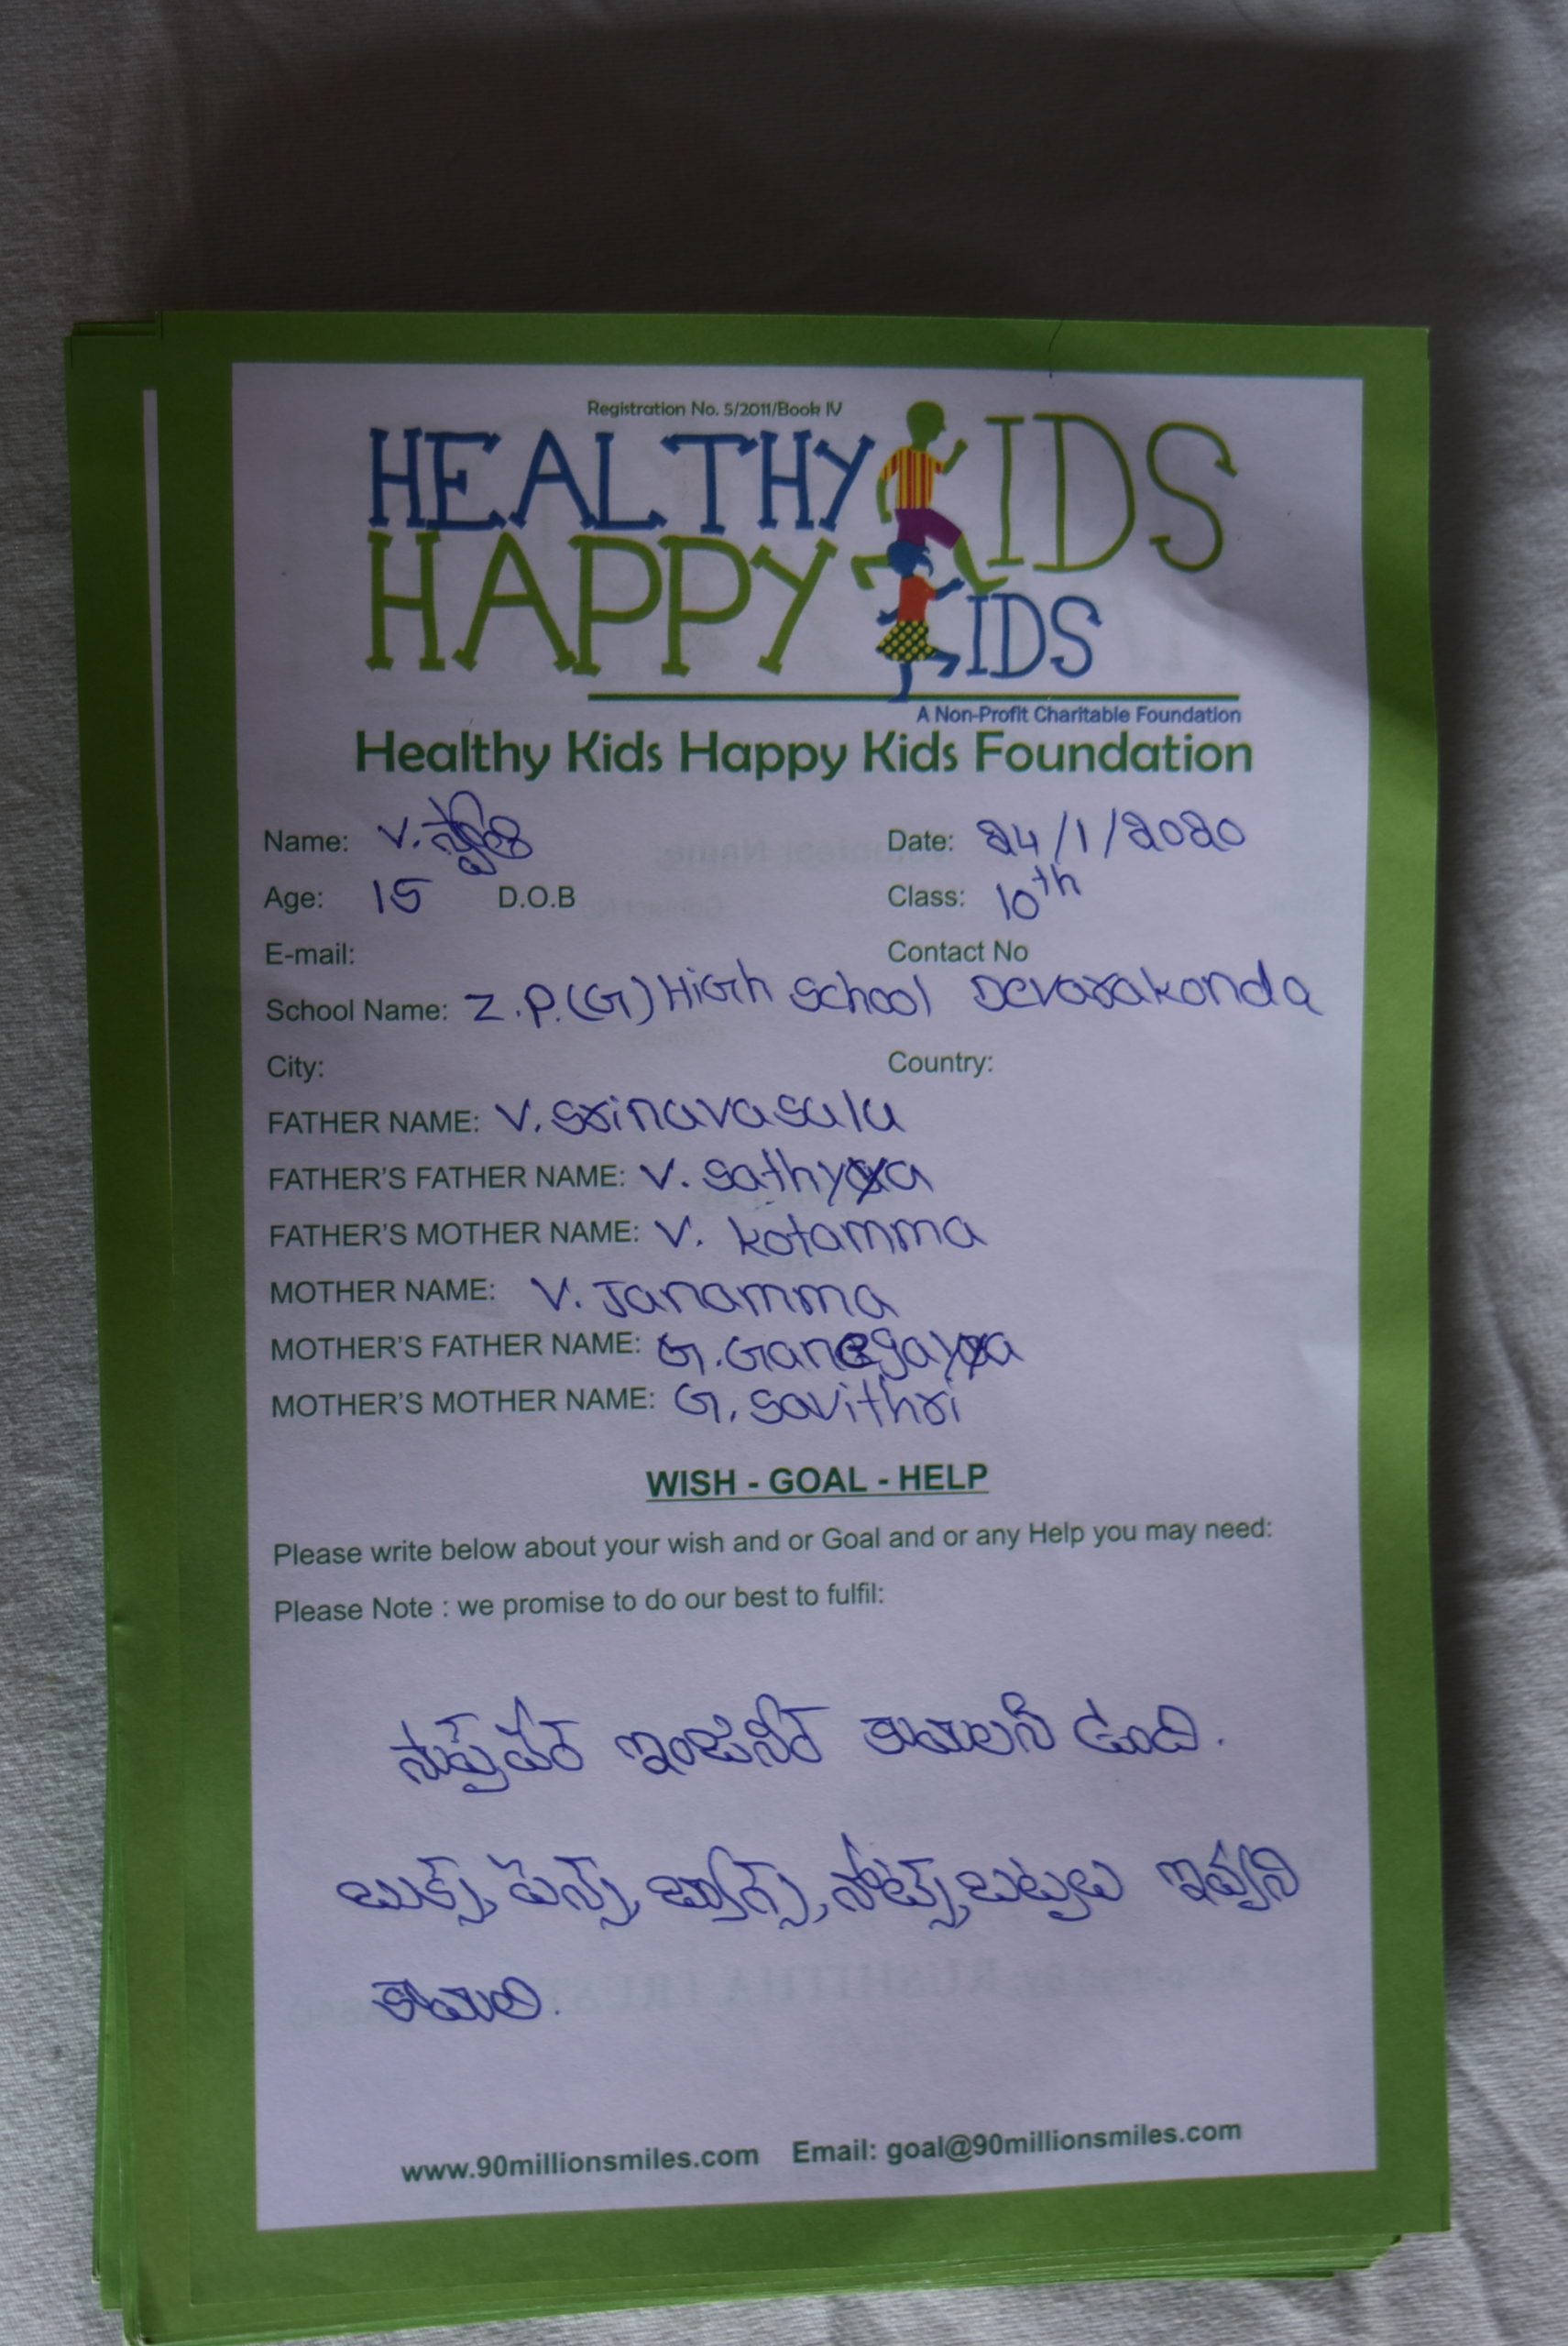 Registration No. 5/2011/Book IV
HEALTHY KIDS
HAPPY KIDS
A Non-Profit Charitable Foundation
Healthy Kids Happy Kids Foundation
Name: V. Date: 24/1/2020
Age: 15 D.O.B Class: 10th
E-mail: Contact No
School Name: Z.P.(G) HiGh School Devarakonda
City: Country:
FATHER NAME: V. Srinavasulu
FATHER'S FATHER NAME: V. Sathya
FATHER'S MOTHER NAME: V. kotamma
MOTHER NAME: V. Janamma
MOTHER'S FATHER NAME: G.
MOTHER'S MOTHER NAME: G. Savithri
WISH - GOAL - HELP
Please write below about your wish and or Goal and or any Help you may need:
Please Note : we promise to do our best to fulfil:
సాఫ్ట్వేర్ ఇంజనీర్ కావాలని ఉంది.
బుక్స్, పెన్స్, బ్యాగ్స్, నోట్స్, బట్టలు ఇవ్వని
కావాలి.
www.90millionsmiles.com Email: goal@90millionsmiles.com